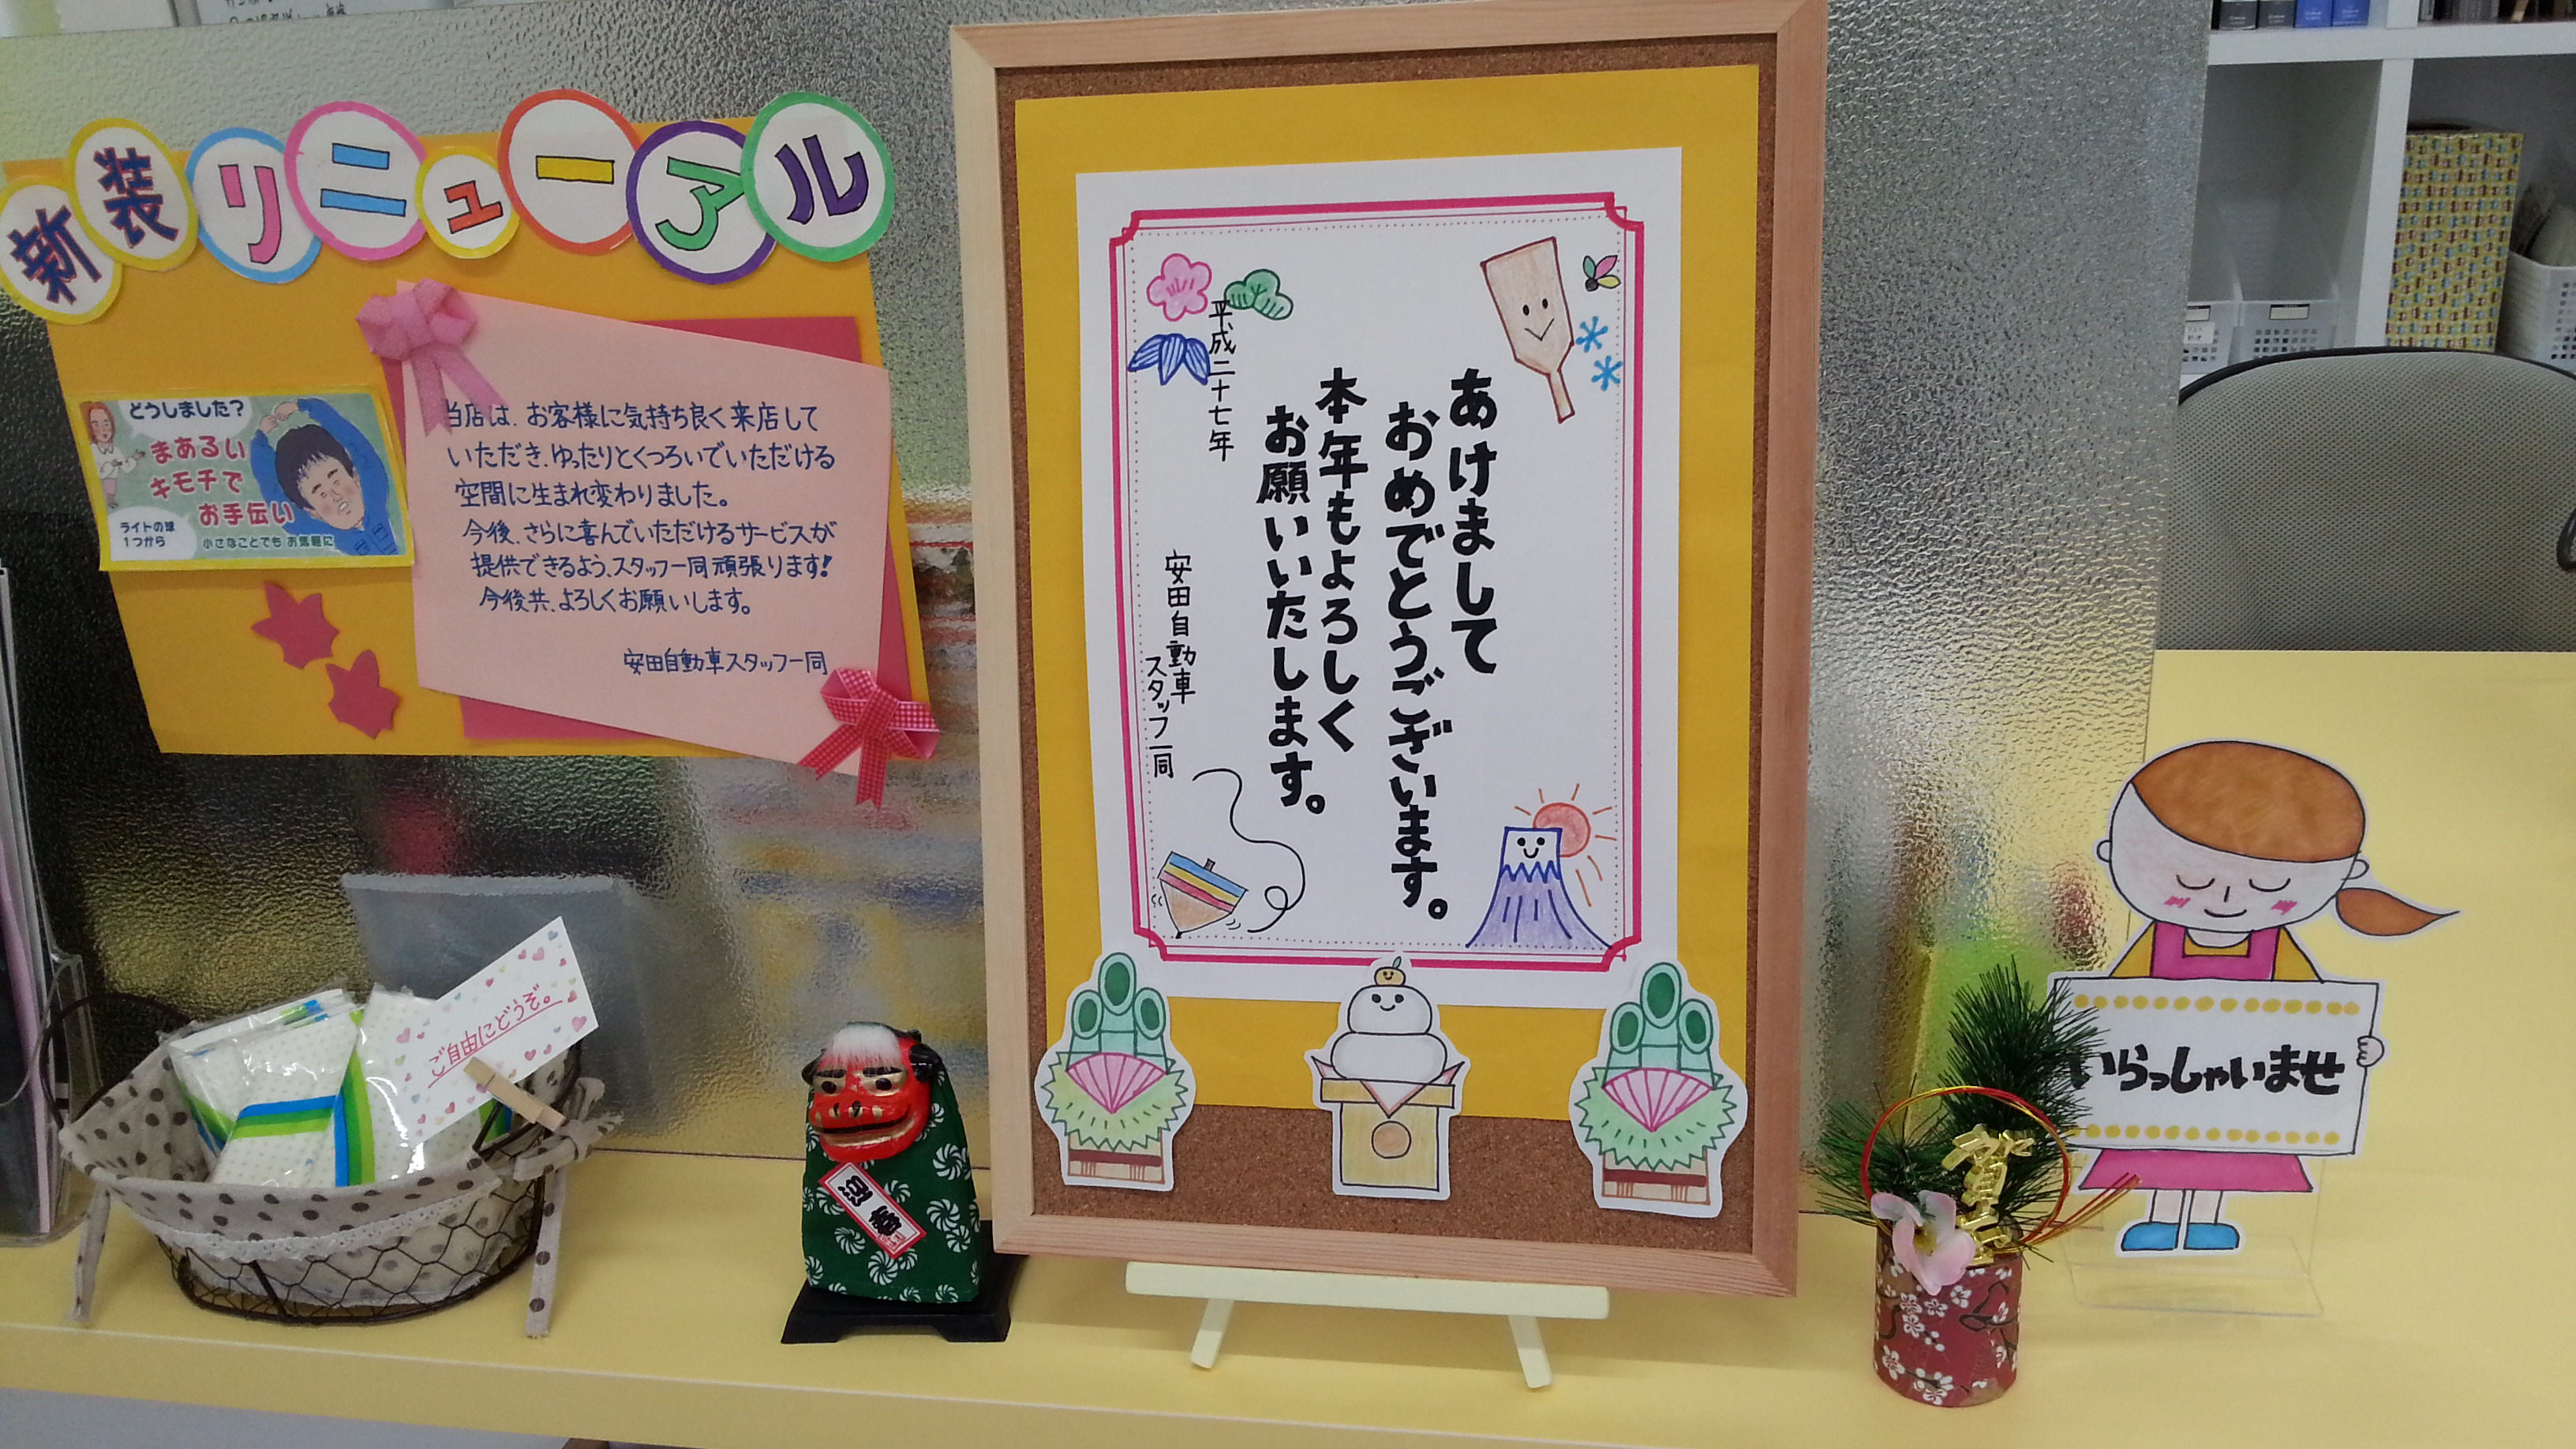 新装リニューアル
どうしました?
まあるい
キモチで
お手伝い
ライトの球
1つから
小さなことでもお気軽に
当店は、お客様に気持ち良く来店して
いただき、ゆったりとくつろいでいただける
空間に生まれ変わりました。
今後、さらに喜んでいただけるサービスが
提供できるよう、スタッフ一同頑張ります!
今後共、よろしくお願いします。
安田自動車スタッフ一同
ご自由にどうぞ。
あけまして
おめでとうございます。
本年もよろしく
お願いいたします。
平成二十七年
安田自動車
スタッフ一同
迎春
いらっしゃいませ